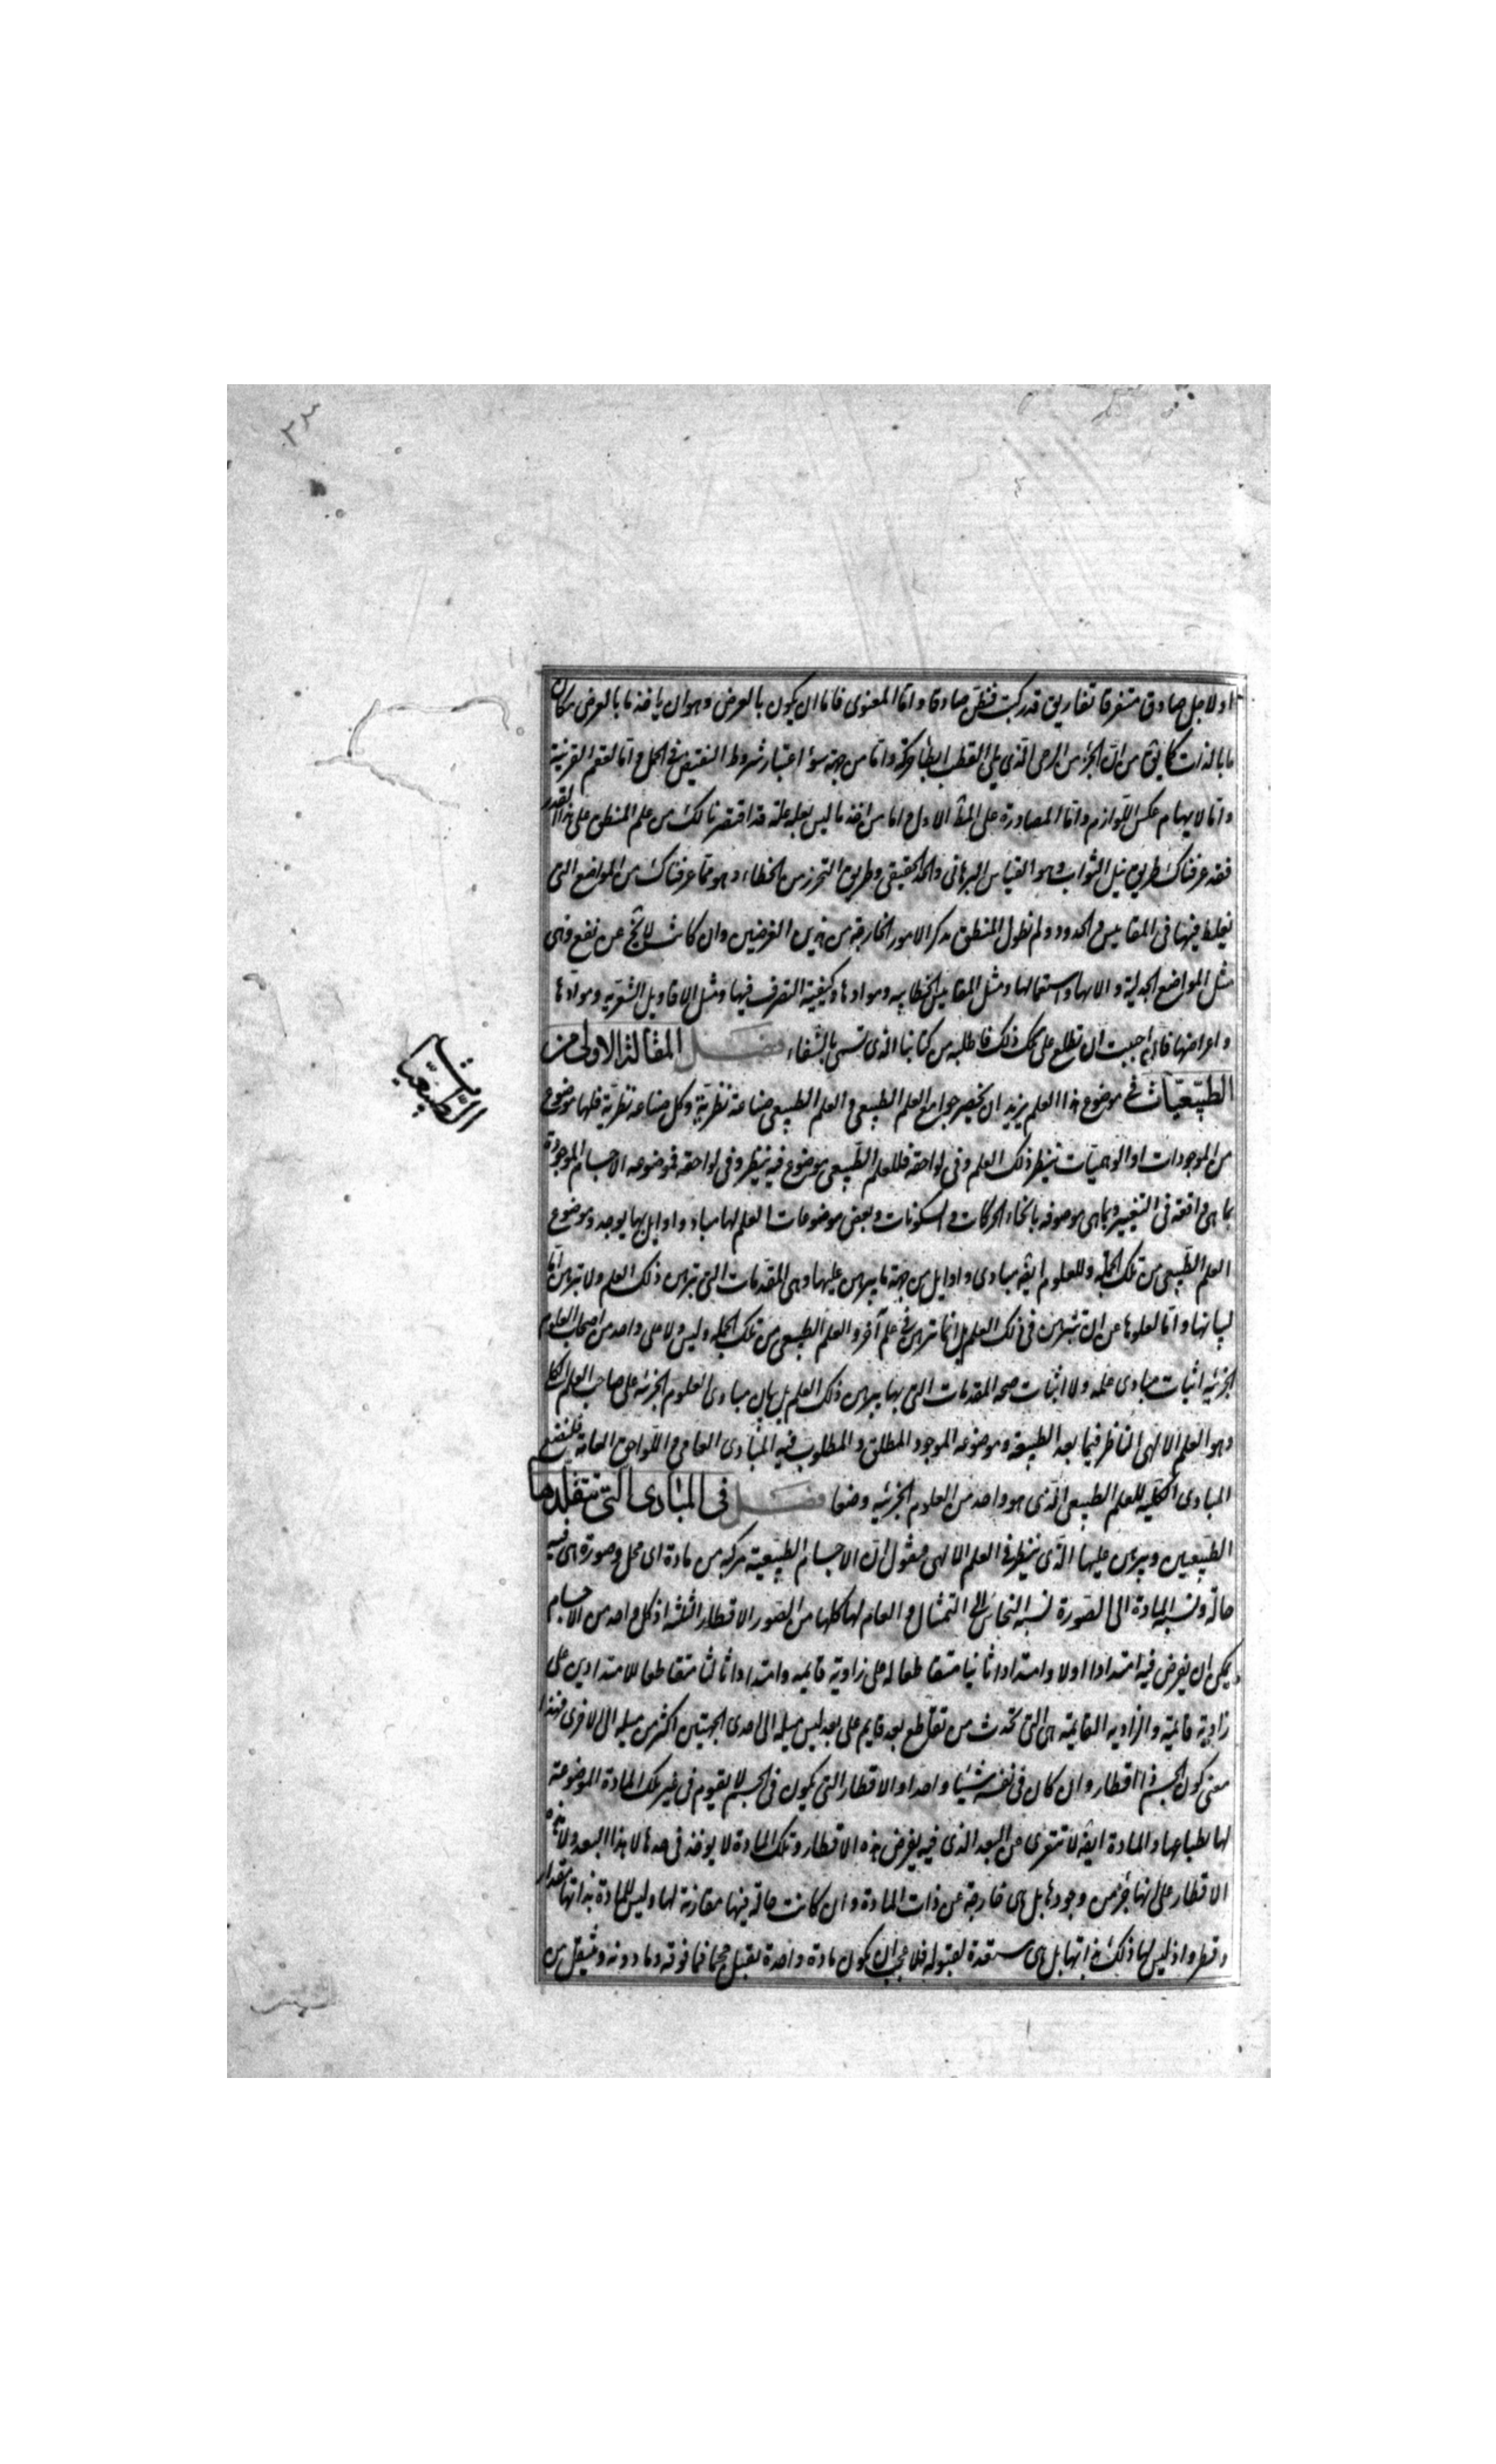 اولاجل صادق متفرقا تفاريق قد ركبت فظن صادقا واما المعنوى فاما ان يكون بالعرض وهو ان ياخذ ما بالعرض مكان
ما بالذات كما يق من ان الجزء من الرحى الذى يلى القطب ابطأ حركة واما من جهة سوء اعتبار شروط النقيض فى الحمل واما لعقم القرينة
واما لايهام عكس اللوازم واما المصادرة على المط الاول واما من اخذ ما ليس بعلة علة قد اقتصرنا لك من علم المنطق على هذا القدر
فقد عرفناك طريق نيل الثواب وهو القياس البرهانى والحد الحقيقى وطريق التحرز من الخطاء وهو مما عرفناك من المواضع التى
يغلط فيها فى المقاييس والحدود ولم نطول المنطق بذكر الامور الخارجة من هذين الغرضين وان كانت لا يخ عن نفع وهى
مثل المواضع الجدلية والاتها واستعمالها ومثل المقاييس الخطابيه وموادها وكيفية التصرف فيها ومثل الاقاويل الشعريه وموادها
واغراضها فان احببت ان تطلع على تلك ذلك فاطلبه من كتابنا الذى تسمى بالشفاء فصل المقالة الاولى من
الطبيعيات فى موضوع هذا العلم يريد ان نحصر جوامع العلم الطبيعى والعلم الطبيعى صناعة نظرية وكل صناعة نظرية فلها موضوع
من الموجودات او الوهميات ينظر ذلك العلم وفى لواحقه فللعلم الطبيعى موضوع فيه ينظر وفى لواحقه فموضوعه الاجسام الموجودة
بما هى واقعة فى التغيير وبما هى موصوفه بانحاء الحركات والسكونات وبعض موضوعات العلم لها مباد واوايل بها يوجد وموضوع
العلم الطبيعى من تلك الجملة وللعلوم ايضه مبادى واوايل من جهة ما يبرهن عليها وهى المقدمات التى تبرهن ذلك العلم ولا تبرهن اما
لبيانها واما لعلوها عن ان تتبرهن فى ذلك العلم بل انما تبرهن فى علم آخر والعلم الطبيعى من تلك الجملة وليس ولا على واحد من اصحاب العلوم
الجزئيه اثبات مبادى علمه ولا اثبات صحه المقدمات التى بها يبرهن ذلك العلم بل بيان مبادى العلوم الجزئه على صاحب العلم الكلى
وهو العلم الالهى الناظر فيما بعد الطبيعة وموضوعه الموجود المطلق والمطلوب فيه المبادى العامة واللواحق العامة فلنضع
المبادى الكليه للعلم الطبيعى الذى هو واحد من العلوم الجزئيه وضعا فصل فى المبادى التى تتقلدها
الطبيعيين ويبرهن عليها الذى ينظر فى العلم الالهى فنقول ان الاجسام الطبيعية مركبه من مادة اى محل وصورة هى فيه
حالة ونسبة المادة الى الصورة نسبة النحاس الى التمثال والعام لها كلها من الصور الاقطار الثلثه اذ كل واحد من الاجسام
يمكن ان يفرض فيه امتدادا اولا وامتدادا ثانيا متقاطعا له على زاوية قايمه وامتدادا ثالثا متقاطعا للامتدادين على
زاوية قائمة والزاويه القايمة هى التى تحدث من تقاطع بعد قايم على بعد ليس ميله الى احدى الجهتين اكثر من ميله الى الاخرى فهذا
معنى كون الجسم ذا اقطار وان كان فى نفسه شيئا واحدا والاقطار التى يكون فى الجسم لا يقوم فى غير تلك المادة الموضوعة
لها بطباعها والمادة ايضه لا تتعرى عن البعد الذى فيه يفرض هذه الاقطار وتلك المادة لا يوخذ فى حدها لا هذا البعد ولا هذه
الاقطار على انها جزء من وجودها بل هى خارجة عن ذات المادة وان كانت حالة فيها مقارنة لها وليس للمادة بذاتها مقدار
وقطر واذ ليس لها ذلك بذاتها بل هى مستعدة لقبوله فلا عجب ان يكون مادة واحدة تقبل حجما فما فوقه وما دونه وتنتقل من
الطبيعيات